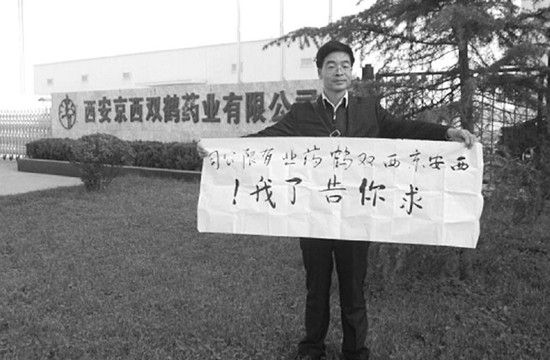 西安京西双鹤药业有限公司
西安京西双鹤药业有限公司
求你告了我！